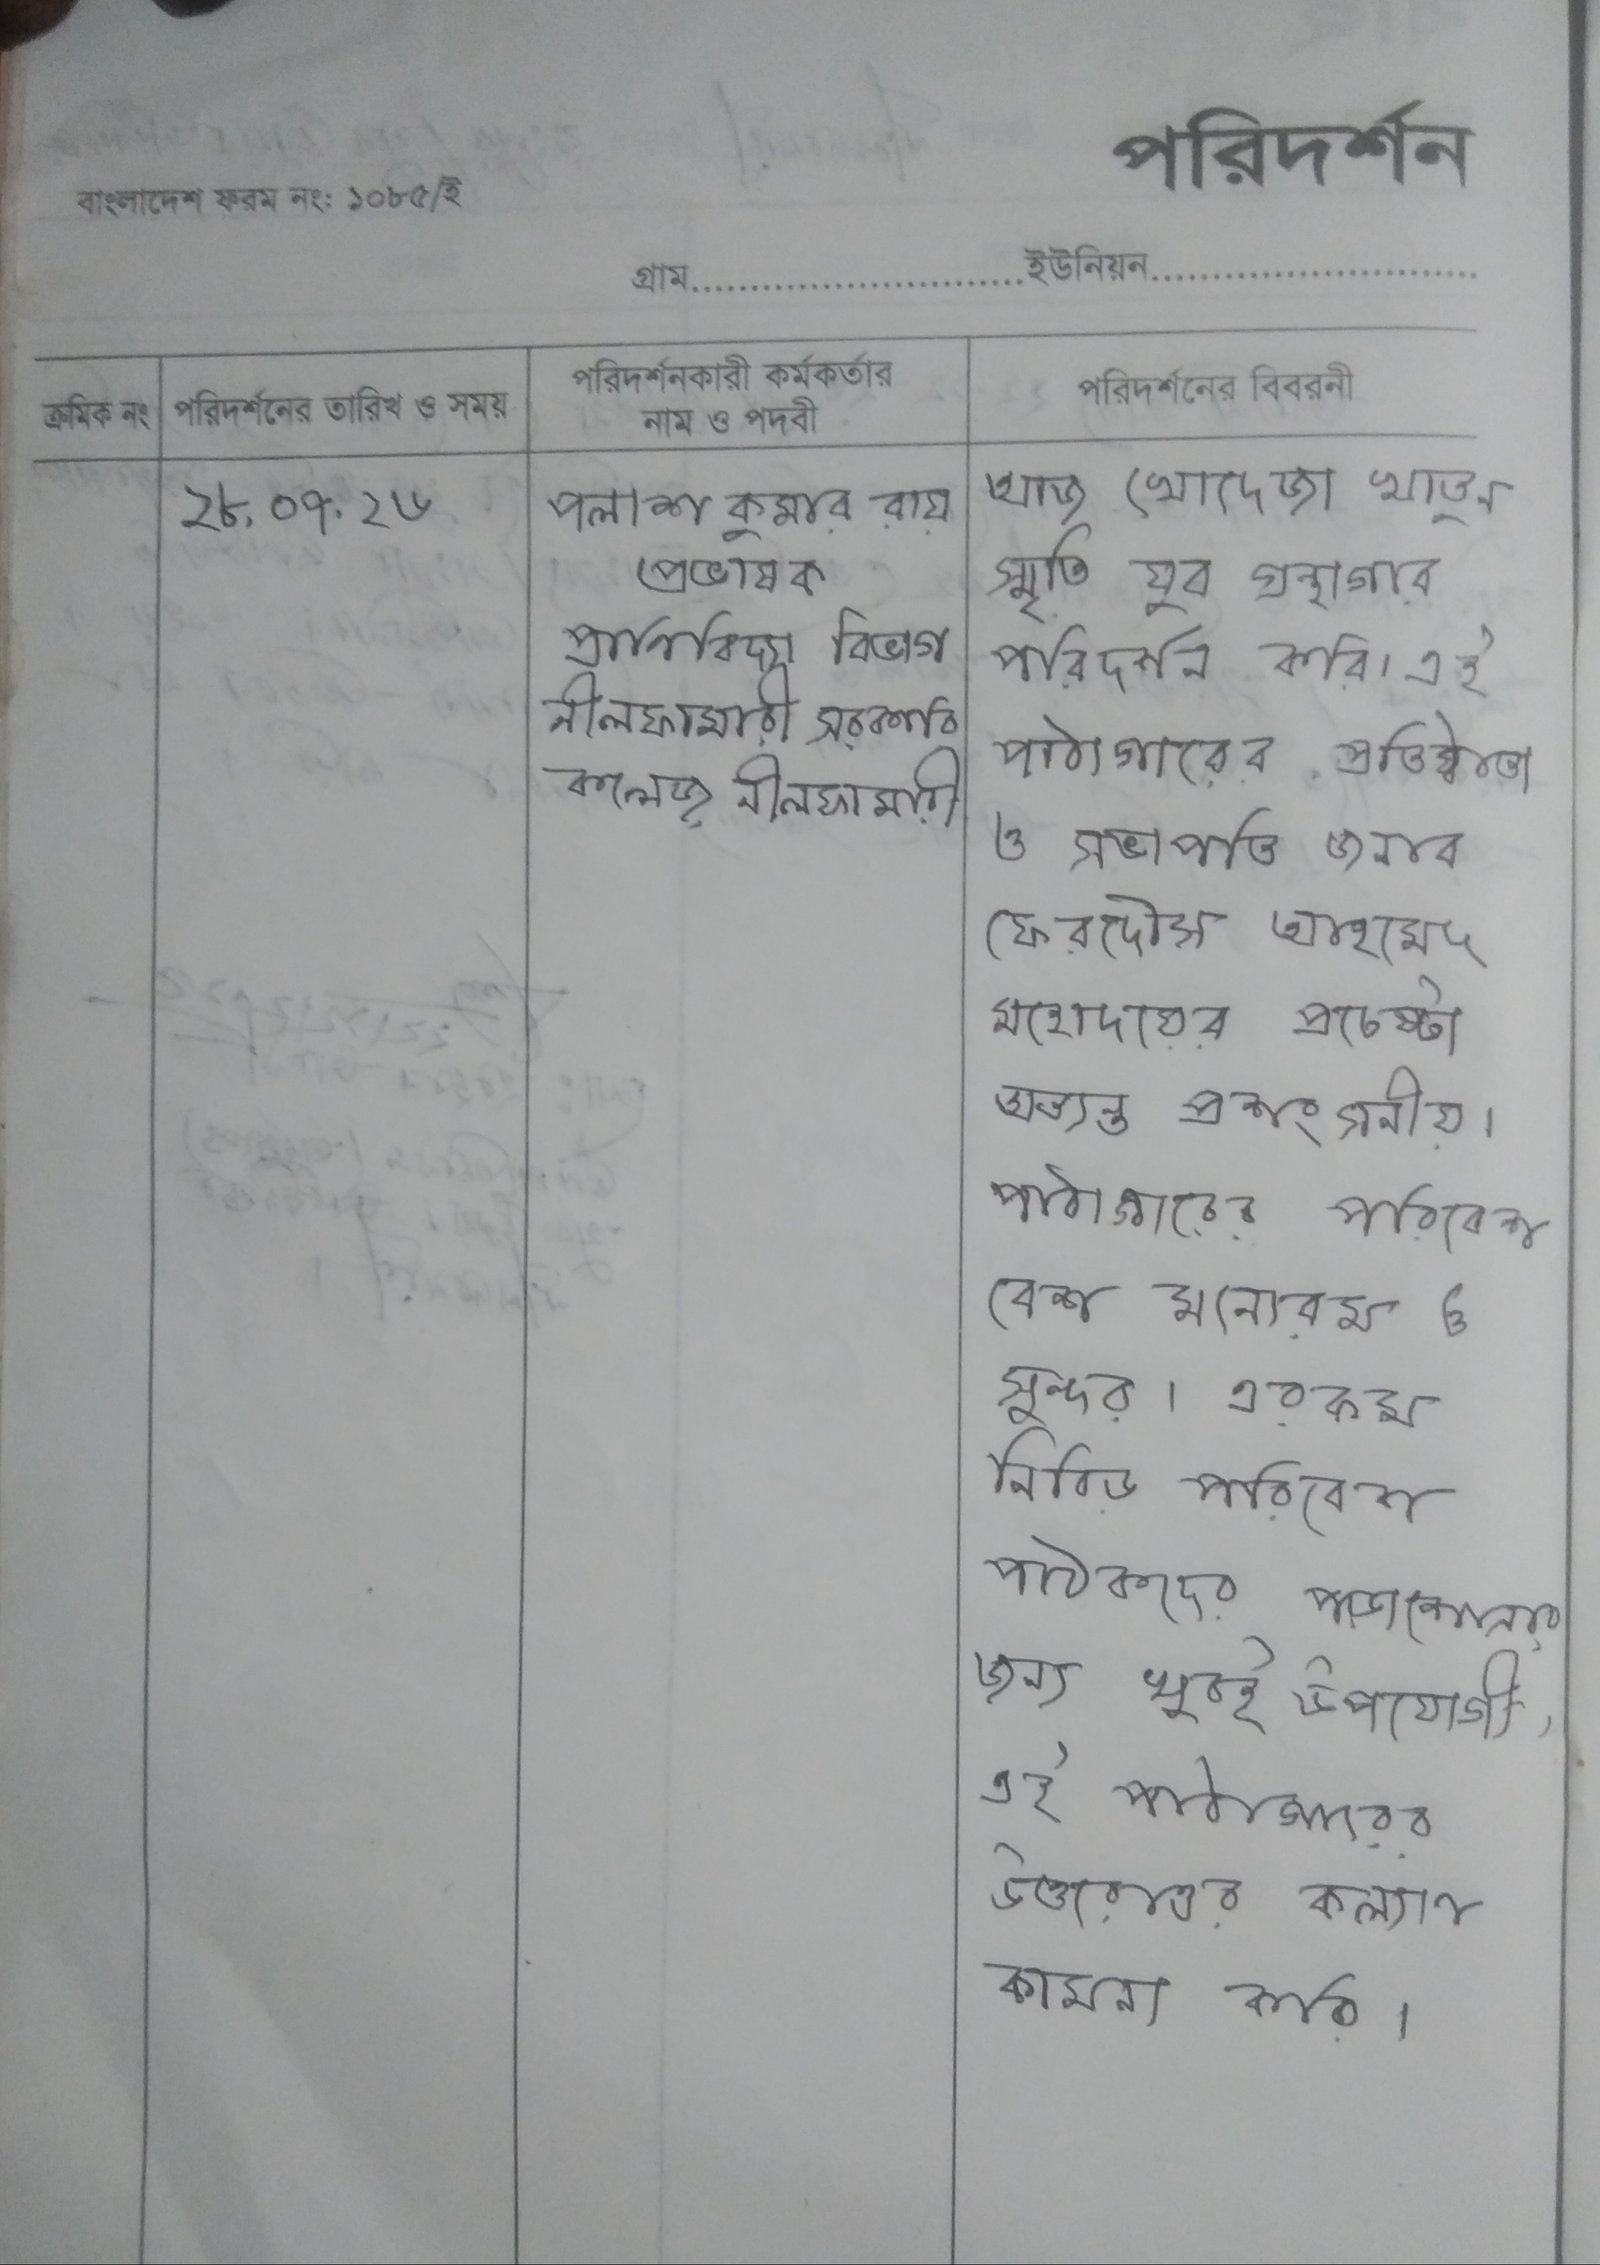 পরিদর্শন
বাংলাদেশ ফরম নং: ১০৮৫/ই
গ্রাম............................ইউনিয়ন............................
ক্রমিক নং
পরিদর্শনের তারিখ ও সময়
পরিদর্শনকারী কর্মকর্তার
নাম ও পদবী
পরিদর্শনের বিবরনী
২৮.০৭.২৬
পলাশ কুমার রায়
প্রভাষক
প্রাণিবিদ্যা বিভাগ
নীলফামারী সরকারি
কলেজ, নীলফামারী
আজ খোদেজা খাতুন
স্মৃতি যুব গ্রন্থাগার
পরিদর্শন করি। এই
পাঠাগারের প্রতিষ্ঠাতা
ও সভাপতি জনাব
ফেরদৌস আহমেদ
মহোদয়ের প্রচেষ্টা
অত্যন্ত প্রশংসনীয়।
পাঠাগারের পরিবেশ
বেশ মনোরম ও
সুন্দর। এরকম
নিবিড় পরিবেশ
পাঠকদের পড়াশোনার
জন্য খুবই উপযোগী,
এই পাঠাগারের
উত্তরোত্তর কল্যাণ
কামনা করি।